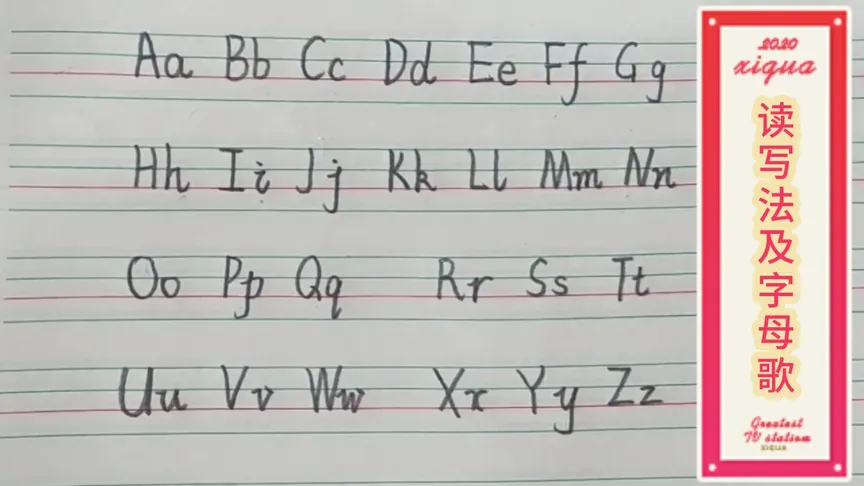 Aa Bb Cc Dd Ee Ff Gg
Hh Ii Jj Kk Ll Mm Nn
Oo Pp Qq Rr Ss Tt
Uu Vv Ww Xx Yy Zz
2020
xigua
读写法及字母歌
Greatest
TV station
XIGUA